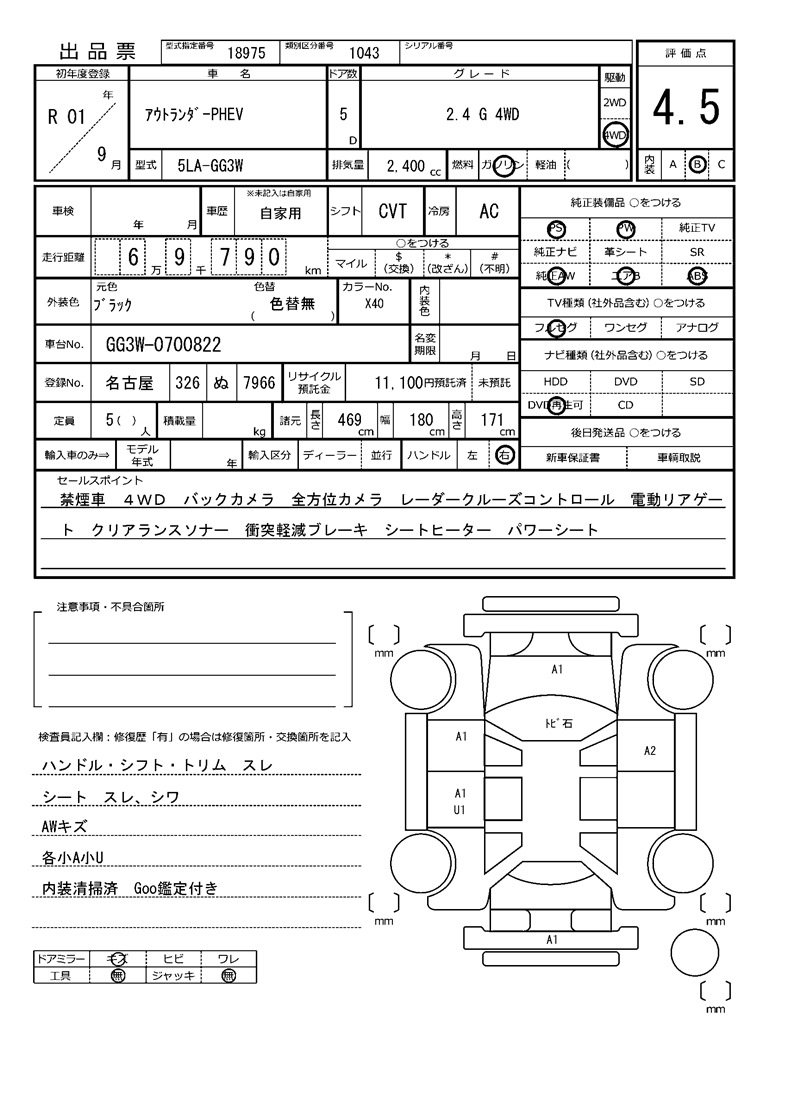 出品票 型式指定番号 18975 類別区分番号 1043 シリアル番号
評価点
初年度登録 車 名 ドア数 グレード 駆動
R 01 年 9 月 ｱｳﾄﾗﾝﾀﾞｰPHEV 5 D 2.4 G 4WD 2WD 4WD
4.5
型式 5LA-GG3W 排気量 2,400 cc 燃料 ガソリン 軽油 ( )
内装 A B C
車検 年 月 車歴 ※未記入は自家用 自家用 シフト CVT 冷房 AC
純正装備品 ○をつける
PS PW 純正TV
走行距離 6 万 9 千 7 9 0 km ○をつける
マイル $ (交換) * (改ざん) # (不明)
純正ナビ 革シート SR
純正AW エアB ABS
外装色 元色 ﾌﾞﾗｯｸ 色替 ( 色替無 ) カラーNo. X40 内装色
TV種類 (社外品含む) ○をつける
フルセグ ワンセグ アナログ
車台No. GG3W-0700822 名変期限 月 日
ナビ種類 (社外品含む) ○をつける
登録No. 名古屋 326 ぬ 7966 リサイクル預託金 11,100円預託済 未預託
HDD DVD SD
DVD再生可 CD
定員 5 ( ) 人 積載量 kg 諸元 長さ 469 cm 幅 180 cm 高さ 171 cm
後日発送品 ○をつける
輸入車のみ⇒ モデル年式 年 輸入区分 ディーラー 並行 ハンドル 左 右
新車保証書 車輌取説
セールスポイント
禁煙車 4WD バックカメラ 全方位カメラ レーダークルーズコントロール 電動リアゲー
ト クリアランスソナー 衝突軽減ブレーキ シートヒーター パワーシート
注意事項・不具合箇所
mm mm
A1
ﾄﾋﾞ石
検査員記入欄：修復歴「有」の場合は修復箇所・交換箇所を記入
A1 A2
ハンドル・シフト・トリム スレ
シート スレ、シワ
A1
U1
AWキズ
各小A小U
内装清掃済 Goo鑑定付き
mm mm
A1
ドアミラー キズ ヒビ ワレ
工具 無 ジャッキ 無
mm